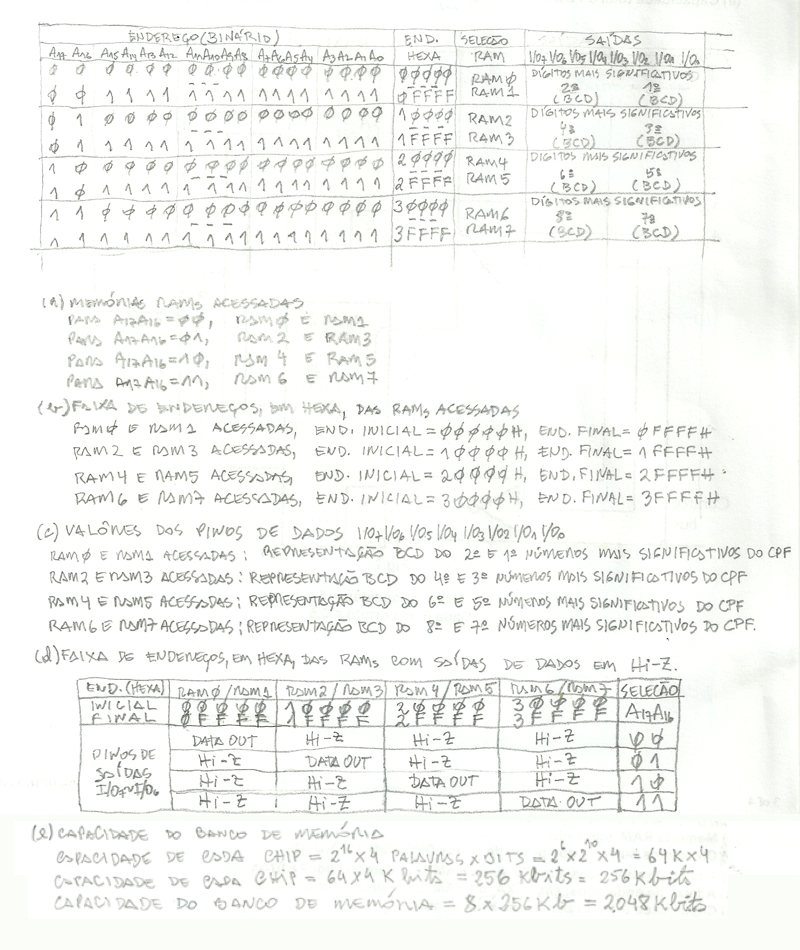 ENDEREÇO (BINÁRIO) END. SELEÇÃO SAÍDAS
A17 A16 A15 A14 A13 A12 A11 A10 A9 A8 A7 A6 A5 A4 A3 A2 A1 A0 HEXA RAM I/O7 I/O6 I/O5 I/O4 I/O3 I/O2 I/O1 I/O0
Ø Ø Ø Ø Ø Ø Ø Ø Ø Ø Ø Ø Ø Ø Ø Ø Ø Ø ØØØØØ RAMØ DÍGITOS MAIS SIGNIFICATIVOS
--- --- 2º 1º
Ø Ø 1 1 1 1 1 1 1 1 1 1 1 1 1 1 1 1 ØFFFF RAM1 (BCD) (BCD)
Ø 1 Ø Ø Ø Ø Ø Ø Ø Ø Ø Ø Ø Ø Ø Ø Ø Ø 1ØØØØ RAM2 DÍGITOS MAIS SIGNIFICATIVOS
--- --- 4º 3º
Ø 1 1 1 1 1 1 1 1 1 1 1 1 1 1 1 1 1 1FFFF RAM3 (BCD) (BCD)
1 Ø Ø Ø Ø Ø Ø Ø Ø Ø Ø Ø Ø Ø Ø Ø Ø Ø 2ØØØØ RAM4 DÍGITOS MAIS SIGNIFICATIVOS
--- --- 6º 5º
1 Ø 1 1 1 1 1 1 1 1 1 1 1 1 1 1 1 1 2FFFF RAM5 (BCD) (BCD)
1 1 Ø Ø Ø Ø Ø Ø Ø Ø Ø Ø Ø Ø Ø Ø Ø Ø 3ØØØØ RAM6 DÍGITOS MAIS SIGNIFICATIVOS
--- --- 8º 7º
1 1 1 1 1 1 1 1 1 1 1 1 1 1 1 1 1 1 3FFFF RAM7 (BCD) (BCD)
(a) MEMÓRIAS RAMs ACESSADAS
PARA A17A16=ØØ, RAMØ E RAM1
PARA A17A16=Ø1, RAM2 E RAM3
PARA A17A16=1Ø, RAM 4 E RAM5
PARA A17A16=11, RAM 6 E RAM7
(b) FAIXA DE ENDEREÇOS, EM HEXA, DAS RAMs ACESSADAS
RAMØ E RAM1 ACESSADAS, END. INICIAL=ØØØØØH, END. FINAL=ØFFFFH
RAM2 E RAM3 ACESSADAS, END. INICIAL=1ØØØØH, END. FINAL= 1FFFFH
RAM4 E RAM5 ACESSADAS, END. INICIAL=2ØØØØH, END. FINAL= 2FFFFH.
RAM6 E RAM7 ACESSADAS, END. INICIAL=3ØØØØH, END. FINAL= 3FFFFH
(c) VALÔRES DOS PINOS DE DADOS I/O7 I/O6 I/O5 I/O4 I/O3 I/O2 I/O1 I/O0
RAMØ E RAM1 ACESSADAS: REPRESENTAÇÃO BCD DO 2º E 1º NÚMEROS MAIS SIGNIFICATIVOS DO CPF
RAM2 E RAM3 ACESSADAS: REPRESENTAÇÃO BCD DO 4º E 3º NÚMEROS MAIS SIGNIFICATIVOS DO CPF
RAM4 E RAM5 ACESSADAS: REPRESENTAÇÃO BCD DO 6º E 5º NÚMEROS MAIS SIGNIFICATIVOS DO CPF
RAM6 E RAM7 ACESSADAS: REPRESENTAÇÃO BCD DO 8º E 7º NÚMEROS MAIS SIGNIFICATIVOS DO CPF.
(d) FAIXA DE ENDEREÇOS, EM HEXA, DAS RAMs COM SAÍDAS DE DADOS EM Hi-Z.
END. (HEXA) RAMØ/RAM1 RAM2/RAM3 RAM4/RAM5 RAM6/RAM7 SELEÇÃO
INICIAL ØØØØØ 1ØØØØ 2ØØØØ 3ØØØØ A17A16
FINAL ØFFFF 1FFFF 2FFFF 3FFFF
PINOS DE DATA OUT Hi-Z Hi-Z Hi-Z ØØ
SAÍDAS Hi-Z DATA OUT Hi-Z Hi-Z Ø1
I/O7~I/O0 Hi-Z Hi-Z DATA OUT Hi-Z 1Ø
Hi-Z Hi-Z Hi-Z DATA OUT 11
(e) CAPACIDADE DO BANCO DE MEMÓRIA
CAPACIDADE DE CADA CHIP = 2^16 x 4 PALAVRAS x BITS = 2^6 x 2^10 x 4 = 64 K x 4
CAPACIDADE DE CADA CHIP = 64 x 4 K bits = 256 Kbits = 256 Kbits
CAPACIDADE DO BANCO DE MEMÓRIA = 8 x 256 Kb = 2048 Kbits